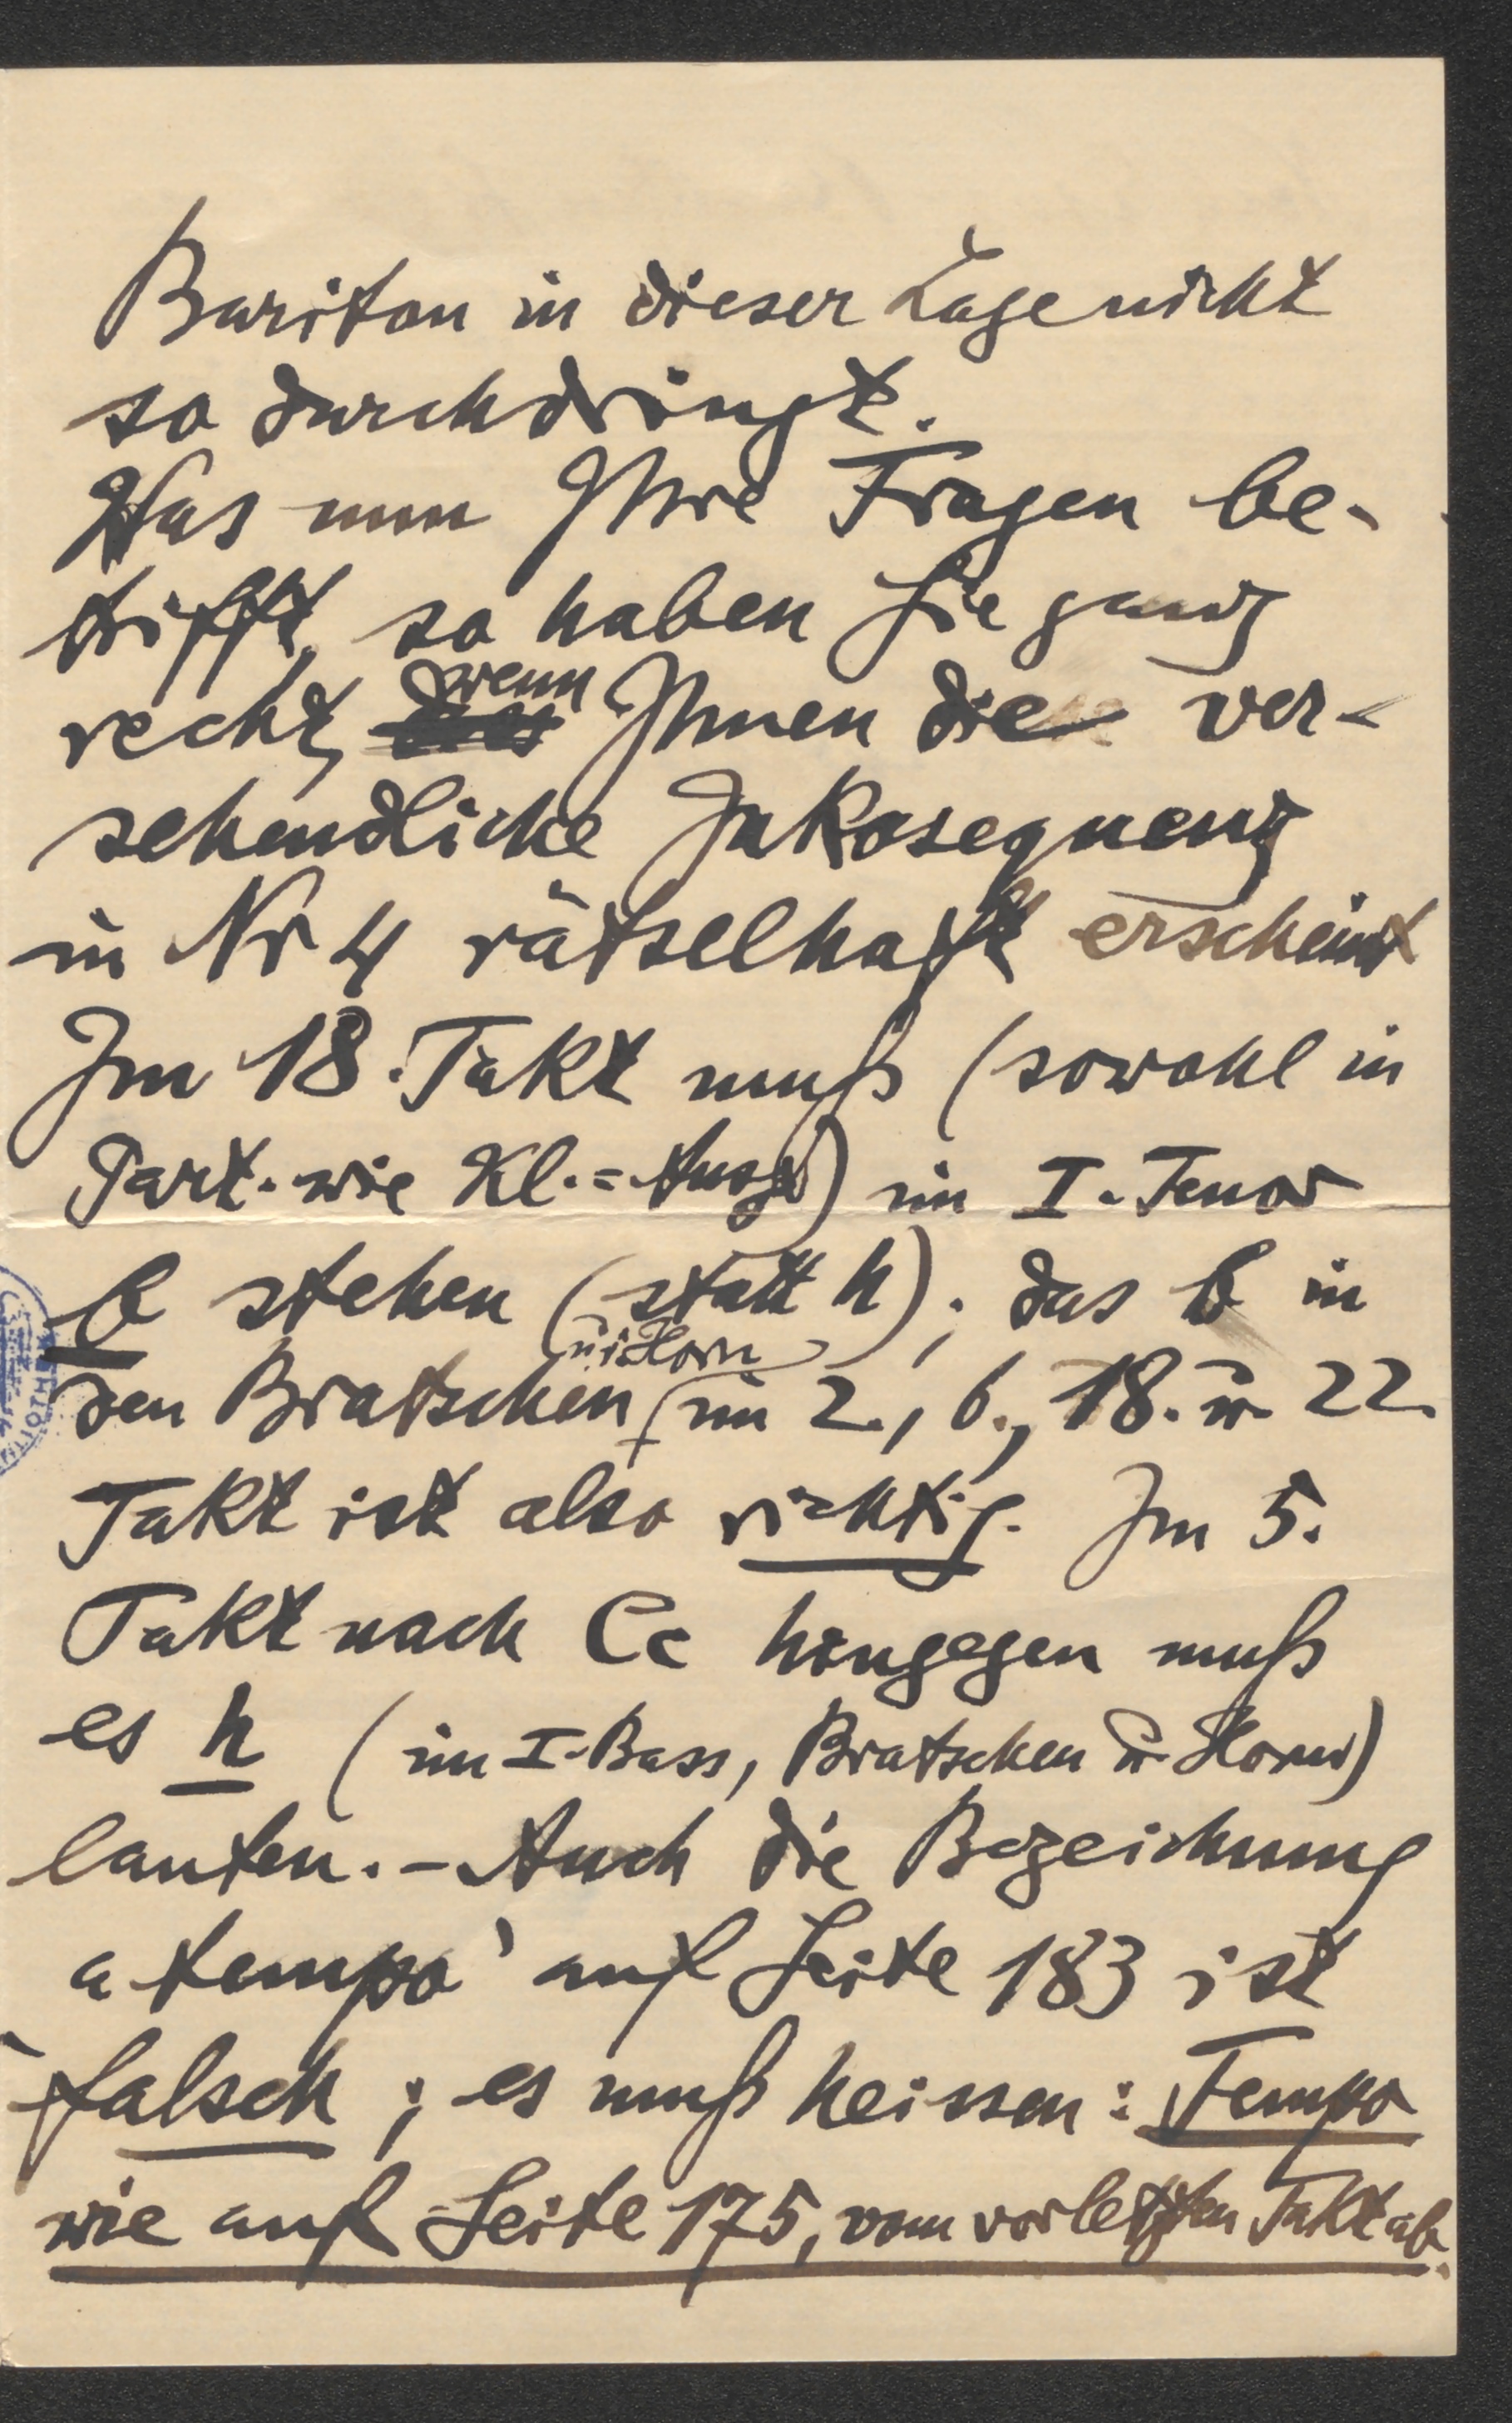 Bariton in dieser Lage nicht
so durchdringt.
Was nun Ihre Fragen be-
trifft, so haben Sie ganz
recht, wenn Ihnen die ver-
sehendliche Inkosequenz
in Nr 4 rätselhaft erscheint
Im 18. Takt muß (sowohl in
Part. wie Kl.=Ausg) im I. Tenor
b stehen (statt h); das b in
den Bratschen (u. Horn) im 2., 6., 18. u. 22.
Takt ist also richtig. Im 5.
Takt nach Cc hingegen muß
es h (im I. Bass, Bratschen u. Horn)
lauten. – Auch die Bezeichnung
a tempo' auf Seite 183 ist
falsch; es muß heissen: Tempo
wie auf Seite 175, vom vorletzten Takt ab.